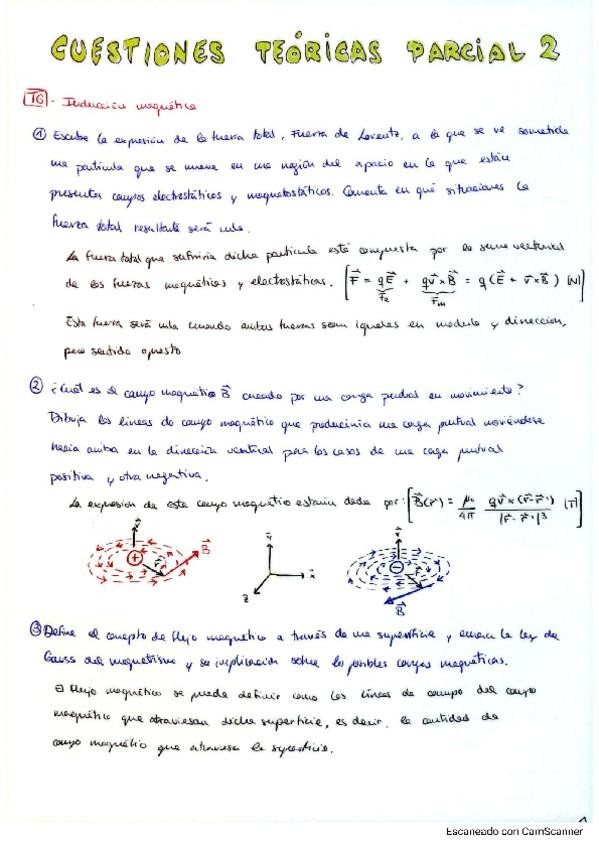 CUESTIONES TEÓRICAS PARCIAL 2
T6 - Inducción magnética
① Escribe la expresión de la fuerza total, Fuerza de Lorentz, a la que se ve sometida
una partícula que se mueve en una región del espacio en la que están
presentes campos electrostáticos y magnetostáticos. Comenta en qué situaciones la
fuerza total resultante será nula.
La fuerza total que sufriría dicha partícula está compuesta por la suma vectorial
de las fuerzas magnéticas y electrostáticas. [F⃗ = qE⃗ + qv⃗×B⃗ = q(E⃗ + v⃗×B⃗) [N]]
Esta fuerza será nula cuando ambas fuerzas sean iguales en modulo y dirección,
pero sentido opuesto
② ¿Cuál es el campo magnético B⃗ creado por una carga puntual en movimiento?
Dibuja las líneas de campo magnético que produciría una carga puntual moviéndose
hacia arriba en la dirección vertical para los casos de una carga puntual
positiva y otra negativa.
La expresión de este campo magnético estaría dada por: [B⃗(r⃗) = μ₀/4π qv⃗×(r⃗-r⃗')/|r⃗-r⃗'|³ [T]]
v⃗ + r⃗ B⃗ y x z v⃗ - r⃗ B⃗
③ Define el concepto de flujo magnético a través de una superficie y enuncia la ley de
Gauss del magnetismo y su implicación sobre las posibles cargas magnéticas.
El flujo magnético se puede definir como las líneas de campo del campo
magnético que atraviesan dicha superficie, es decir, la cantidad de
campo magnético que atraviesa la superficie.
Escaneado con CamScanner